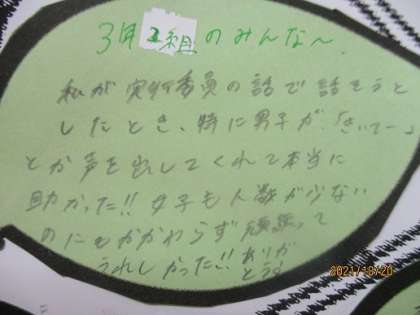 3年2組のみんな〜
私が実行委員の話で話そうと
したとき、特に男子が、「きいてー」
とか声を出してくれて本当に
助かった!!女子も人数が少ない
のにもかかわらず頑張って
うれしかった!!ありが
とう
2021/10/20